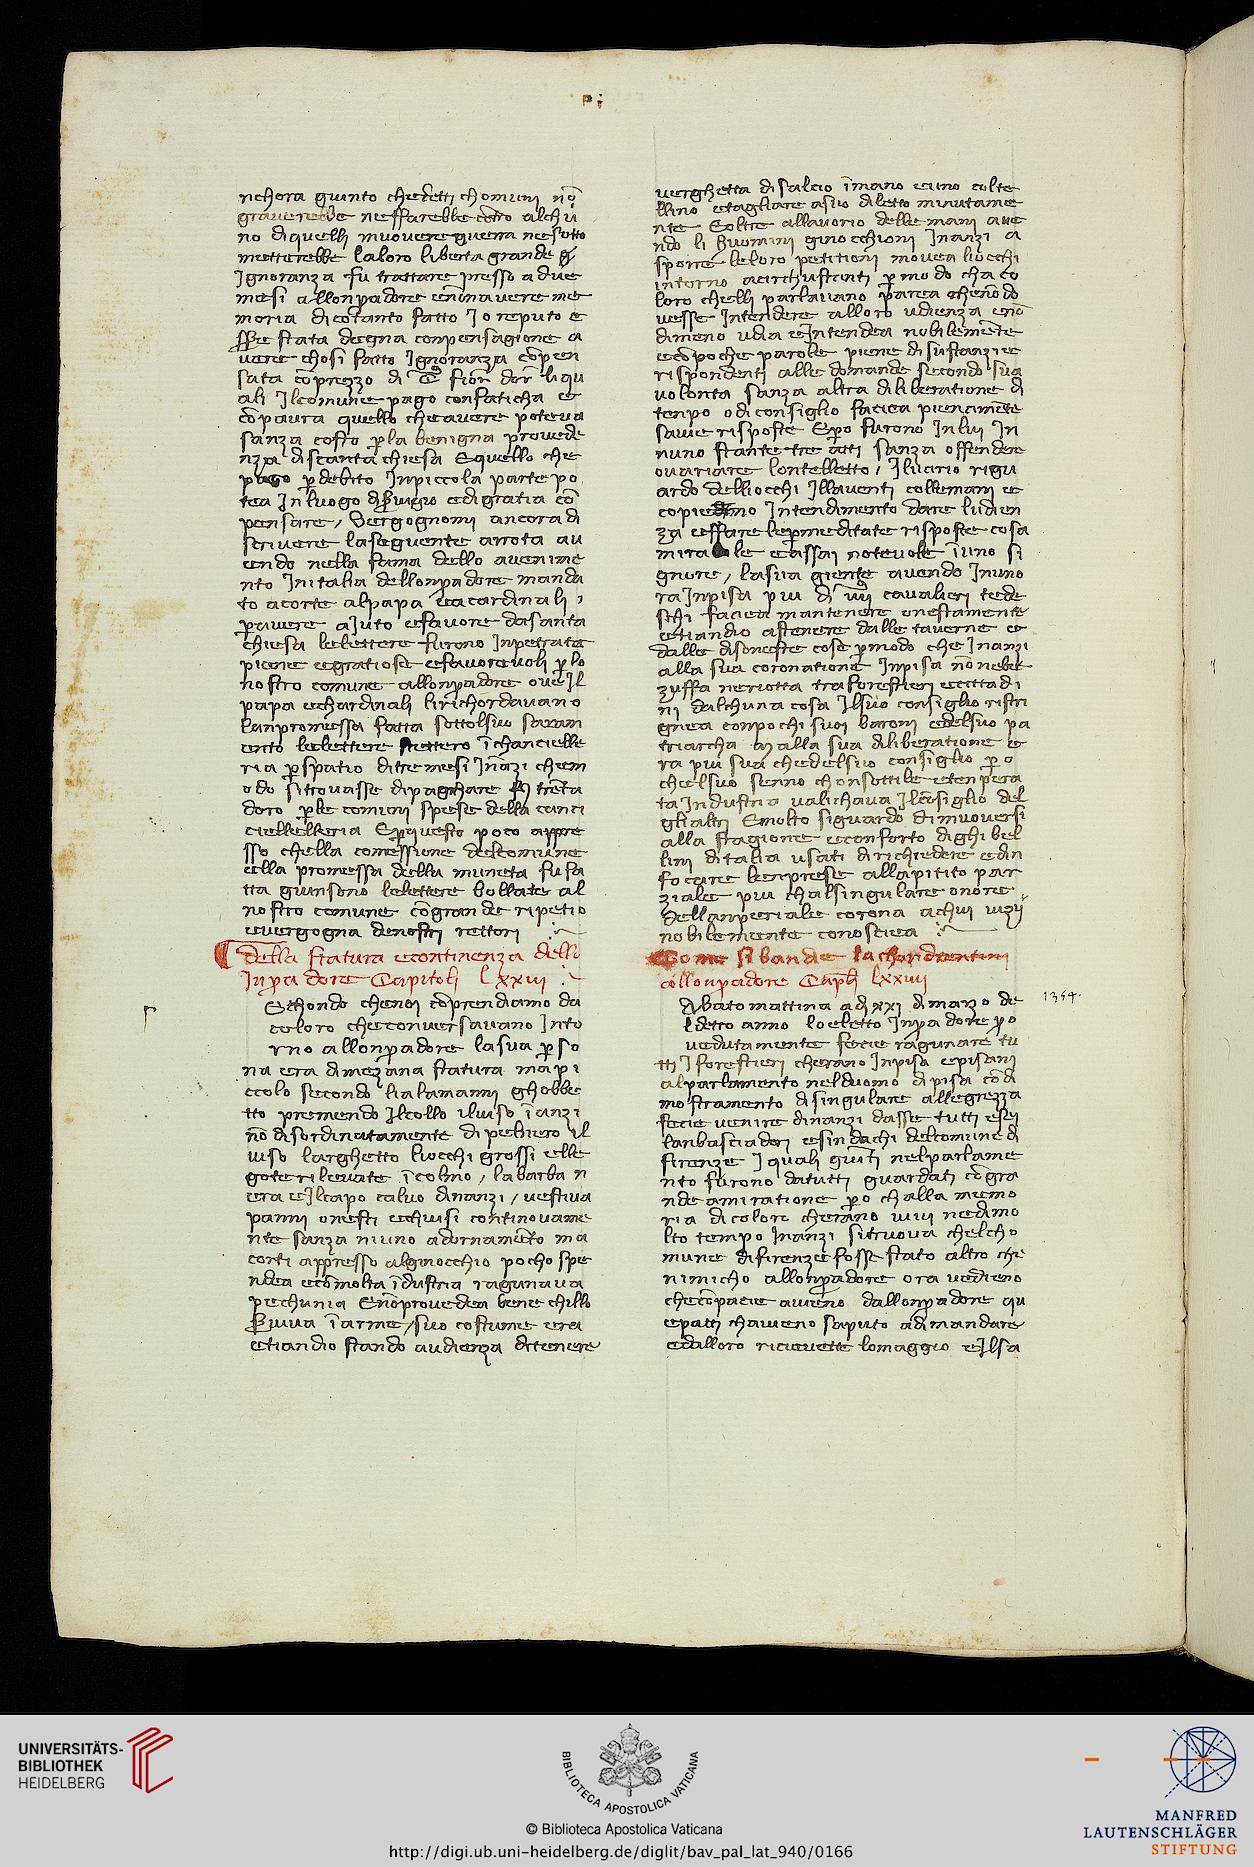 nchora giunto che detti chomuni nō
graverebbe ne farebbe cōtro alchu
no di quelli muovere guerra ne sotto
metterebbe la loro liberta grande
Ignoranza fu trattare presso a due
mesi allonpadore enōnavere me
moria di cotanto fatto Jo reputo e
sse stata degna conpensagione a
vere chosi fatto Ignoranza cōpen
sata cō prezzo di fior dor liqu
ali Jlcomune pago con faticha e
cō paura quello che avere poteva
sanza costo p la benigna provede
nza di scanta chiesa Equello che
pago p debito Inpiccola parte po
tea In luogo di Svigio e digratia cō
pensare / Vergognomi ancora di
scrivere la seguente arrota av
endo nella fama dello avenime
nto Initalia dellonpadore manda
to acorte al papa eacardinali,
p avere ajuto efavore da santa
chiesa le lettere furono Inpetrate
piene egratiose efavorevoli p lo
nostro comune allonpadore ove Jl
papa echardinali lirichordavano
lanpromessa fatta sottolsuo saram
ento le lettere stettero ī chancielle
ria p spatio ditre mesi Inazi chem
odo si trovasse dipaghare treta
doro p le comuni spese della canci
cielleria Ep questo poco appre
sso chella comessione del comune
ella promessa della muneta fu fa
tta giunsono le lettere bollate al
nostro comune cō gran de ripetio
evergogna denostri rettori
Della statura econtinenza dello
Inpadore Capitolj lxxiiij
Sechondo chenoi cōprendiamo da
coloro checonversavano Jnto
rno allonpadore la sua pso
na era dimezana statura ma pi
ccolo secondo lialamanni ghobbe
tto premendo Jlcollo ilviso ī anzi
nō disordinatamente di pelniero il
viso larghetto liocchi grossi elle
gote rilevate ī colmo, la barba n
era eJlcapo calvo dinanzi / vestiva
panni onesti echiusi continovame
nte sanza niuno adornamēto ma
corti appresso alginocchio pocho spe
ndea ecō molta īdustria ragunava
pechunia Enō provedea bene chillo
Sviva ī arme / suo costume era
etiandio stando audienza ditenere
verghetta di salcio ī mano euno colte
llino etagliare asuo diletto minutame
nte Eoltre allavorio delle mani ave
ndo li huomini ginocchioni Jnanzi a
sporre le loro petitioni movea liocchi
intorno acirchustanti p modo cha co
loro chelli parlavano parea chenō do
vesse Intendere alloro udienza enō
dimeno udia eIntendea nobilemēte
ecō poche parole piene di sustanzi e
rispondenti alle domande secondo sua
volonta sanza altra diliberatione di
tenpo odi consiglio faciea pienamēte
savie risposte Epo furono Inlui In
nuno stante tre atti sanza offendere
ovariare lontelletto / Jlvario rigu
ardo delliocchi Jllaventi collemani e
copiedmo Intendimento dare ludien
za effare le pmeditate risposte cosa
mirabile eassai notevole īuno si
gnore, la sua giente avendo Inuno
ra Inpisa piu di iiij cavalieri tede
schi faciea mantenere onestamente
etiandio astenere dalle taverne e
dalle disoneste cose p modo che Inanzi
alla sua coronatione Inpisa nō nebbe
zuffa neriotta tra forestieri ecittadi
ni dalchuna cosa Jlsuo consiglio ristri
gnea conpochi suoi baroni edelsuo pa
triarcha ma alla sua diliberatione e
ra piu sua che delsuo consiglio po
chelsuo senno chonsottile etenpera
ta Industria valichava Jlcōsiglio del
glialtri Emolto siguardo dimuoversi
alla stagione econforto dighibel
lini ditalia usati dirichiedere edin
focare lenprese allapitito par
ziale piu chalsingulare onore
dellanperiale corona achui vizij
nobilemente conosciea
Come sibande lachordorentini
collonpadore Caph lxxiiij
Abato mattina adi xxj dimarzo de
l detto anno lo eletto Inpadore po
vedutamente fecie ragunare tu
tti J forestieri cherano Inpisa episani
alparlamento nelduomo dipisa cō di
mostramento disingulare allegrezza
fecie venire dinanzi dasse tutti esei
lanbasciadori esindachi delcomune di
firenze J quali giuti nel parlame
nto furono datutti guardati cō gra
nde amiratione po challa memo
ria dicoloro cherāno vivi nedimo
lto tempo Jnāzi sitruova chelcho
mune difirenze fosse stato altro che
nimicho allonpadore ora vedieno
checō pacie avieno dallonpadore qu
epatti chavieno saputo adimandare
edalloro ricievette lomaggio eJlsa
1354.
UNIVERSITÄTS-
BIBLIOTHEK
HEIDELBERG
BIBLIOTECA APOSTOLICA VATICANA
© Biblioteca Apostolica Vaticana
http://digi.ub.uni-heidelberg.de/diglit/bav_pal_lat_940/0166
MANFRED
LAUTENSCHLÄGER
STIFTUNG